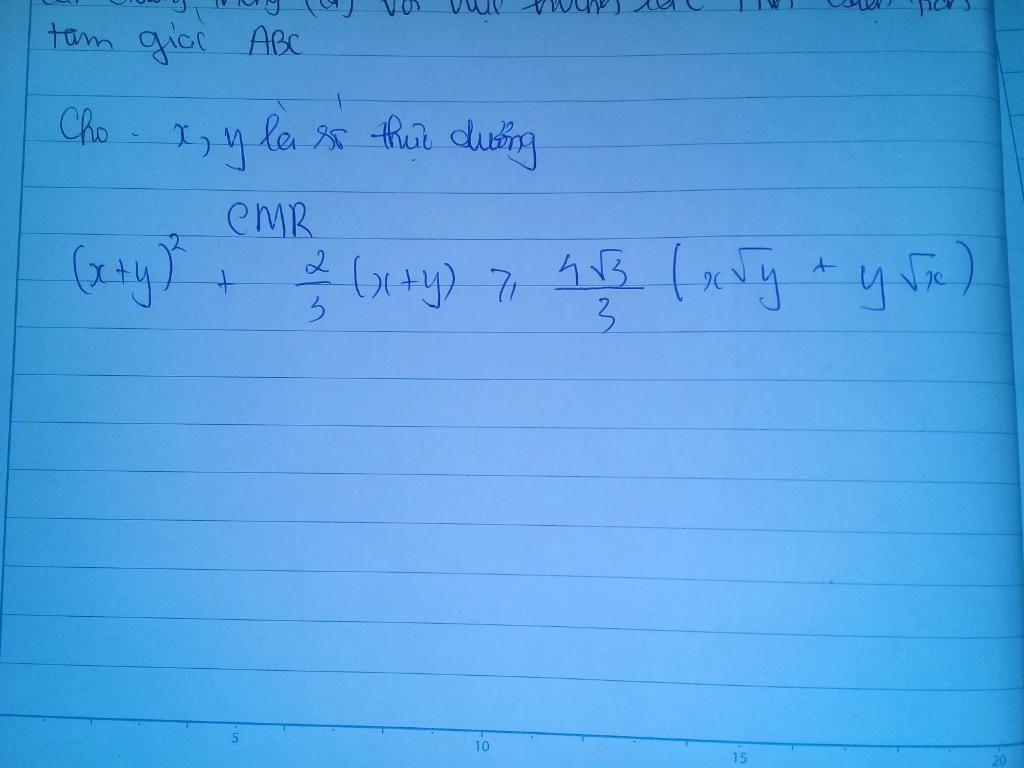 tam giác ABC
Cho . x, y là số thực dương
CMR
(x+y)² + 2/3 (x+y) ≥ 4√3/3 (x√y + y√x)
5 10 15 20